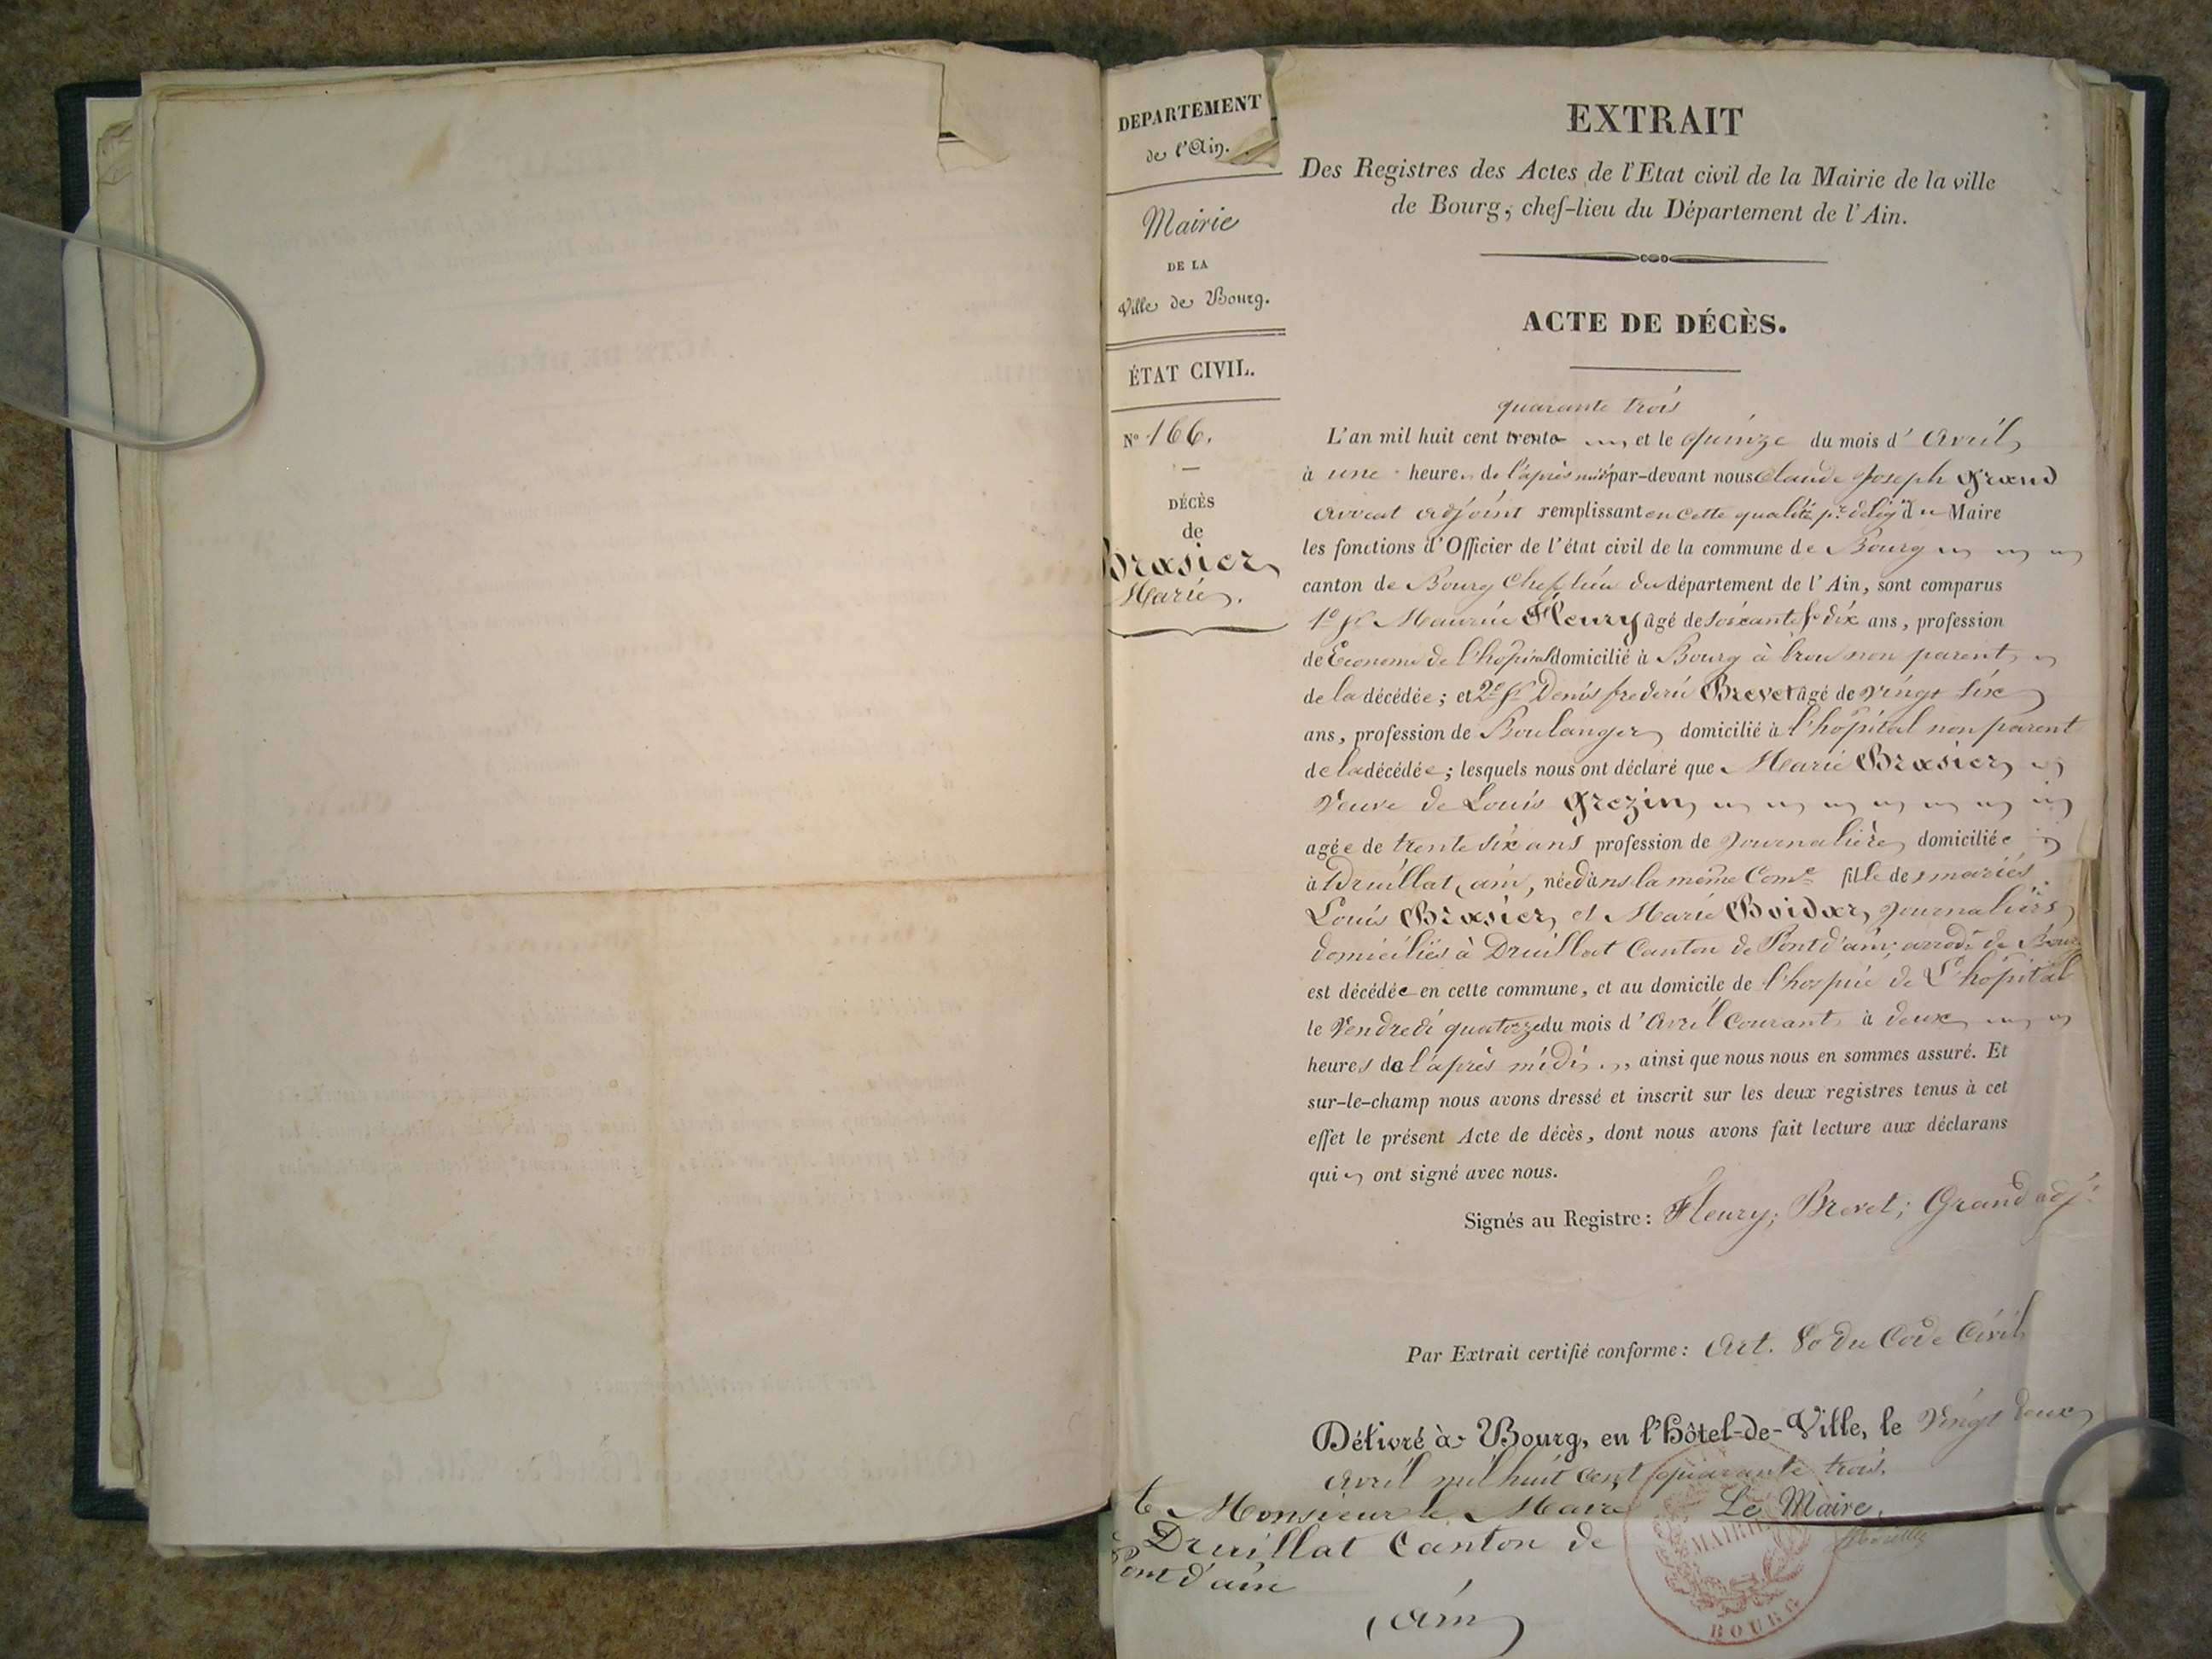 DEPARTEMENT
de l'Ain.
Mairie
DE LA
Ville de Bourg.
ÉTAT CIVIL.
N° 166.
DÉCÈS
de
Brasier
Marie.
EXTRAIT
Des Registres des Actes de l'Etat civil de la Mairie de la ville
de Bourg, chef-lieu du Département de l'Ain.
ACTE DE DÉCÈS.
quarante trois
L'an mil huit cent trente et le quinze du mois d' Avril
à une heure de l'après midi par-devant nous Claude Joseph Grand
Avocat adjoint remplissant en cette qualité pr. délég. du Maire
les fonctions d'Officier de l'état civil de la commune de Bourg
canton de Bourg Chef lieu du département de l'Ain, sont comparus
1° Sr. Maurice Fleury âgé de soixante & dix ans, profession
de Econome de l'hopital domicilié à Bourg à brou non parent
de la décédée; et 2° Sr. Denis frederic Brevet âgé de vingt six
ans, profession de Boulanger domicilié à l'hopital non parent
de la décédée; lesquels nous ont déclaré que Marie Brasier
Veuve de Louis Grezin
agée de trente six ans profession de Journalière domiciliée
à Druillat, ain, née dans la même Come. fille des mariés
Louis Brasier et Marie Boidar, Journaliers
domiciliés à Druillat Canton de Pont d'ain, arrodt. de Bourg
est décédée en cette commune, et au domicile de l'hospice de L'hôpital
le Vendredi quatorze du mois d'Avril Courant à deux
heures de l'après midi, ainsi que nous nous en sommes assuré. Et
sur-le-champ nous avons dressé et inscrit sur les deux registres tenus à cet
effet le présent Acte de décès, dont nous avons fait lecture aux déclarans
qui ont signé avec nous.
Signés au Registre: Fleury; Brevet; Grand adjt.
Par Extrait certifié conforme: Art. 80 du Code Civil
Délivré à Bourg, en l'Hôtel-de-Ville, le Vingt deux
avril mil huit cent quarante trois.
Le Maire,
Monsieur le Maire
Druillat Canton de
Pont d'ain
(ain)
MAIRIE
BOURG